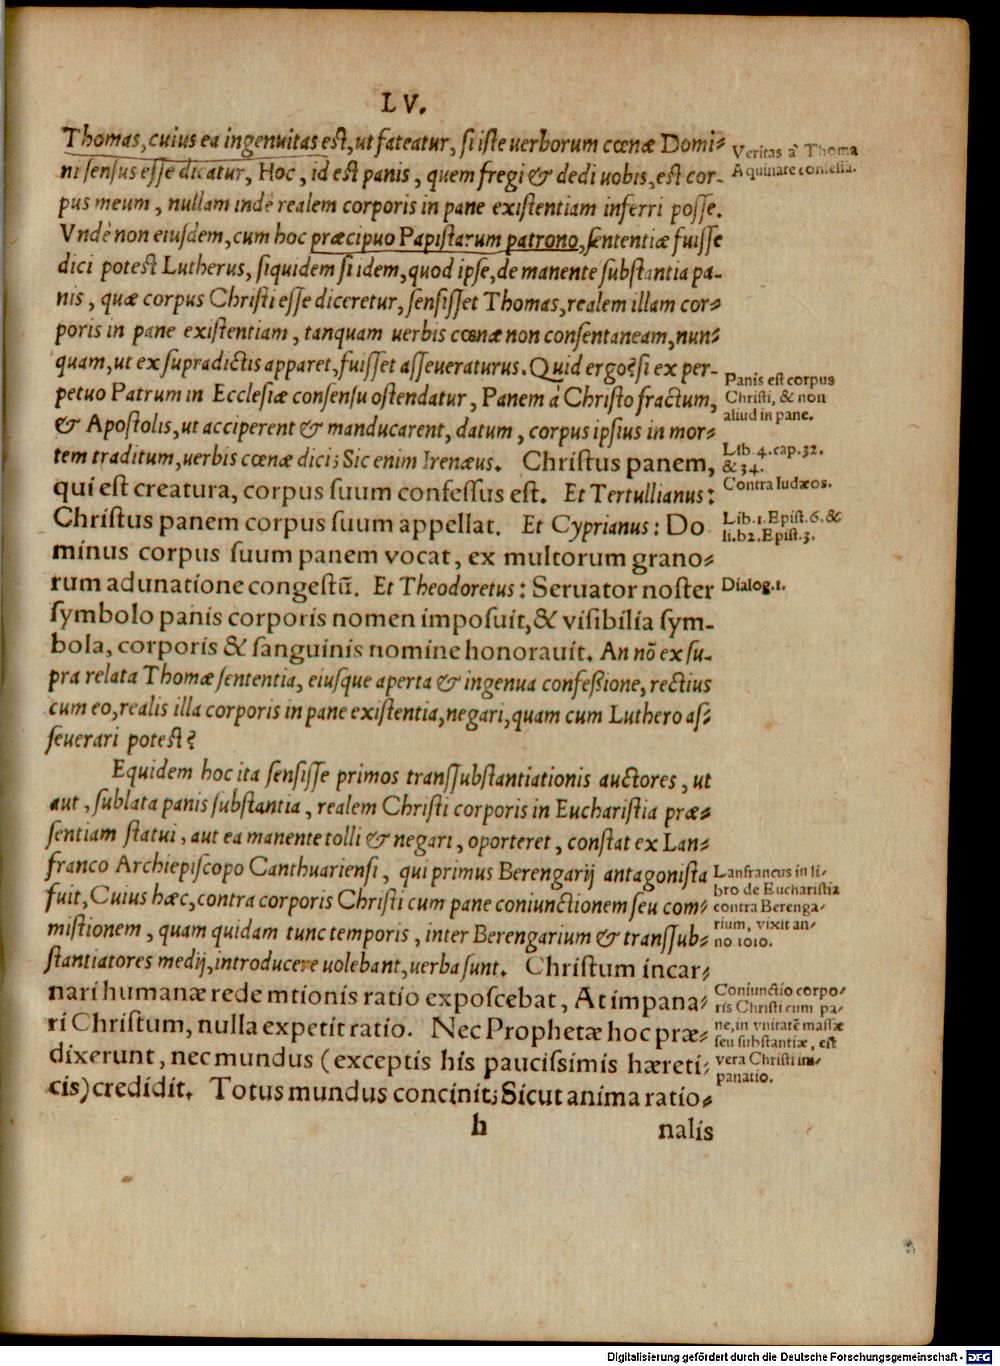 LV.
Thomas, cuius ea ingenuitas est, ut fateatur, si iste uerborum cœnæ Domi-
ni sensus esse dicatur, Hoc, id est panis, quem fregi & dedi uobis, est cor-
pus meum, nullam inde realem corporis in pane existentiam inferri posse.
Vnde non eiusdem, cum hoc præcipuo Papistarum patrono, sententiæ fuisse
dici potest Lutherus, siquidem si idem, quod ipse, de manente substantia pa-
nis, quæ corpus Christi esse diceretur, sensisset Thomas, realem illam cor-
poris in pane existentiam, tanquam uerbis cœnæ non consentaneam, nun-
quam, ut ex supradictis apparet, fuisset asseueraturus. Quid ergo? si ex per-
petuo Patrum in Ecclesiæ consensu ostendatur, Panem à Christo fractum,
& Apostolis, ut acciperent & manducarent, datum, corpus ipsius in mor-
tem traditum, uerbis cœnæ dici; Sic enim Irenæus. Christus panem,
qui est creatura, corpus suum confessus est. Et Tertullianus:
Christus panem corpus suum appellat. Et Cyprianus: Do
minus corpus suum panem vocat, ex multorum grano-
rum adunatione congestū. Et Theodoretus: Seruator noster
symbolo panis corporis nomen imposuit, & visibilia sym-
bola, corporis & sanguinis nomine honorauit. An nō ex su-
pra relata Thomæ sententia, eiusque aperta & ingenua confeßione, rectius
cum eo, realis illa corporis in pane existentia, negari, quam cum Luthero as-
seuerari potest?
Equidem hoc ita sensisse primos transsubstantiationis auctores, ut
aut, sublata panis substantia, realem Christi corporis in Eucharistia præ-
sentiam statui, aut ea manente tolli & negari, oporteret, constat ex Lan-
franco Archiepiscopo Canthuariensi, qui primus Berengarij antagonista
fuit, Cuius hæc, contra corporis Christi cum pane coniunctionem seu com-
mistionem, quam quidam tunc temporis, inter Berengarium & transsub-
stantiatores medij, introducere uolebant, uerba sunt. Christum incar-
nari humanæ rede mtionis ratio exposcebat, At impana-
ri Christum, nulla expetit ratio. Nec Prophetæ hoc præ-
dixerunt, nec mundus (exceptis his paucissimis hæreti-
cis) credidit. Totus mundus concinit; Sicut anima ratio-
h nalis
Veritas à Thoma
Aquinate confessa.
Panis est corpus
Christi, & non
aliud in pane.
Lib. 4. cap. 32.
& 34.
Contra Iudæos.
Lib. 1. Epist. 6. &
li. b2. Epist. 3.
Dialog. 1.
Lanfrancus in li-
bro de Eucharistia
contra Berenga-
rium, vixit an-
no 1010.
Coniunctio corpo-
ris Christi cum pa-
ne, in vnitatē massæ
seu substantiæ, est
vera Christi im-
panatio.
Digitalisierung gefördert durch die Deutsche Forschungsgemeinschaft - DFG